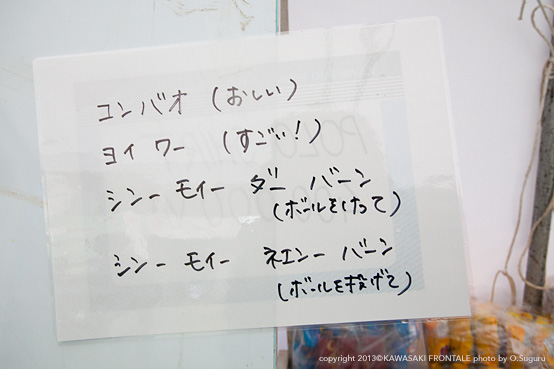 コンバオ (おしい)
ヨイ ワー (すごい!)
シンー モイー ダー バーン
(ボールをけって)
シンー モイー ネエンー バーン
(ボールを投げて)
copyright 2013©KAWASAKI FRONTALE photo by O.Suguru